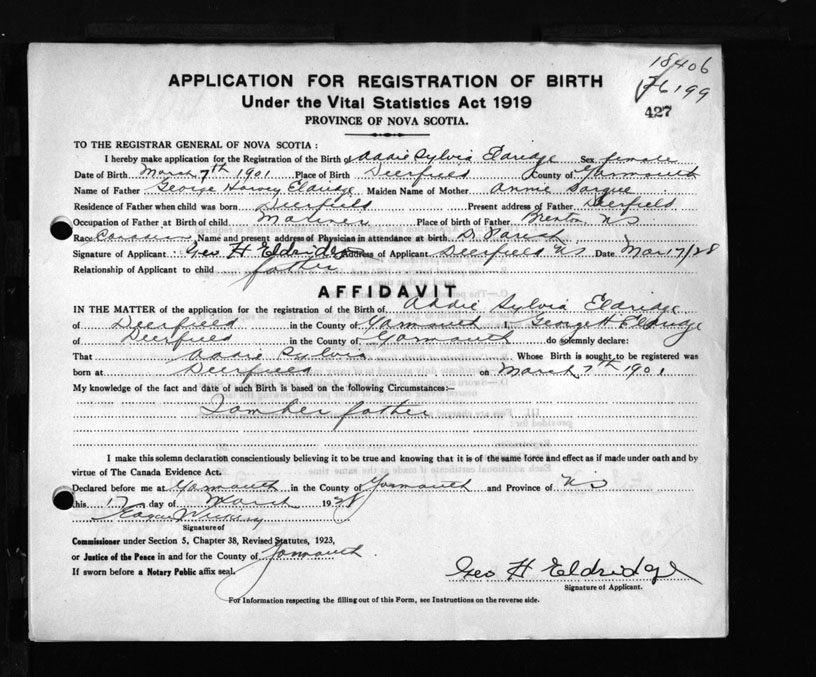 18406
76199
427
APPLICATION FOR REGISTRATION OF BIRTH
Under the Vital Statistics Act 1919
PROVINCE OF NOVA SCOTIA.
TO THE REGISTRAR GENERAL OF NOVA SCOTIA :
I hereby make application for the Registration of the Birth of Addie Sylvia Eldridge Sex female
Date of Birth March 7th 1901 Place of Birth Deerfield County of Yarmouth
Name of Father George Harvey Eldridge Maiden Name of Mother Annie
Residence of Father when child was born Deerfield Present address of Father Deerfield
Occupation of Father at Birth of child Mariner Place of birth of Father NS
Race Name and present address of Physician in attendance at birth
Signature of Applicant Geo H Eldridge Address of Applicant Deerfield NS Date Mar 17/28
Relationship of Applicant to child father
AFFIDAVIT
IN THE MATTER of the application for the registration of the Birth of Addie Sylvia Eldridge
of Deerfield in the County of Yarmouth I, George H Eldridge
of Deerfield in the County of Yarmouth do solemnly declare:
That Addie Sylvia Whose Birth is sought to be registered was
born at Deerfield on March 7th 1901
My knowledge of the fact and date of such Birth is based on the following Circumstances:—
I am her father
I make this solemn declaration conscientiously believing it to be true and knowing that it is of the same force and effect as if made under oath and by
virtue of The Canada Evidence Act.
Declared before me at Yarmouth in the County of Yarmouth and Province of NS
this 17 day of March 1928
Signature of
Commissioner under Section 5, Chapter 38, Revised Statutes, 1923,
or Justice of the Peace in and for the County of Yarmouth
If sworn before a Notary Public affix seal.
Geo H Eldridge
Signature of Applicant.
For Information respecting the filling out of this Form, see Instructions on the reverse side.